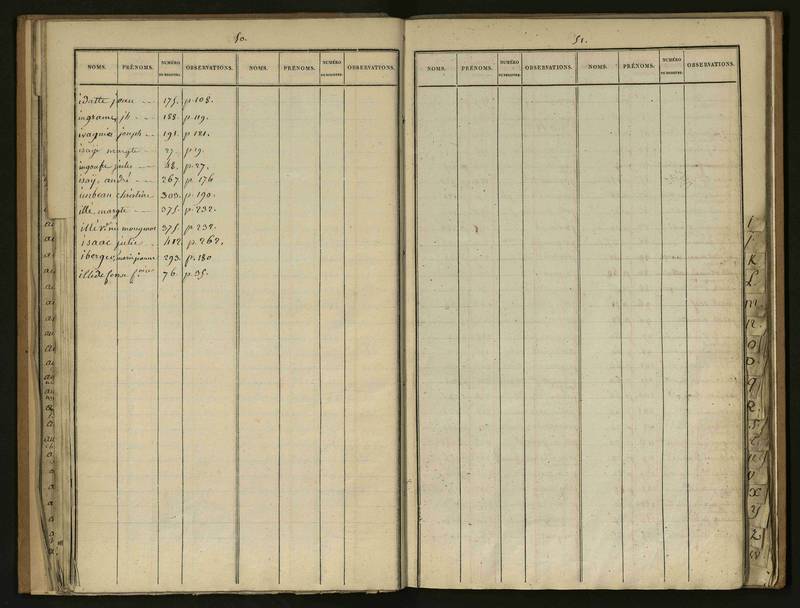 50.
NOMS. PRÉNOMS. NUMÉRO DU REGISTRE. OBSERVATIONS. NOMS. PRÉNOMS. NUMÉRO DU REGISTRE. OBSERVATIONS.
idatte jean 175. p. 108.
ingrame jb 188. p. 119.
ivagnier joseph 191. p. 121.
isaÿe margte p. 9.
jules 48. p. 27.
isaÿ, andré 267. p. 176
imbeau christine 303. p. 190.
ille, margte 375. p. 232.
ille vve né mougenot 375. p. 232.
isaac julie 412. p. 262.
iberger, marie jeanne 293. p. 180
76. p. 35.
51.
NOMS. PRÉNOMS. NUMÉRO DU REGISTRE. OBSERVATIONS. NOMS. PRÉNOMS. NUMÉRO DU REGISTRE. OBSERVATIONS.
K
L
m
n
O
P
q
R
S
V
X
Y
Z